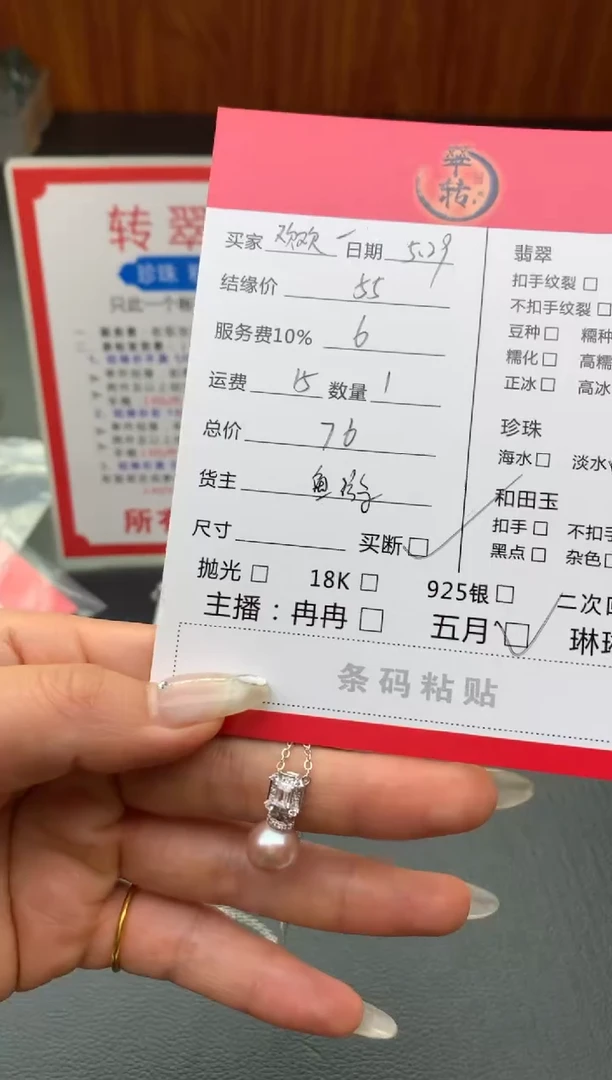 翠
转翠
珍珠
只此一个
所有
买家 欢欢 日期 5.29
结缘价 55
服务费10% 6
运费 15 数量 1
总价 76
货主
尺寸 买断
抛光 18K 925银 二次
主播：冉冉 五月 琳
条码粘贴
翡翠
扣手纹裂
不扣手纹裂
豆种 糯种
糯化 高糯
正冰 高冰
珍珠
海水 淡水
和田玉
扣手 不扣手
黑点 杂色